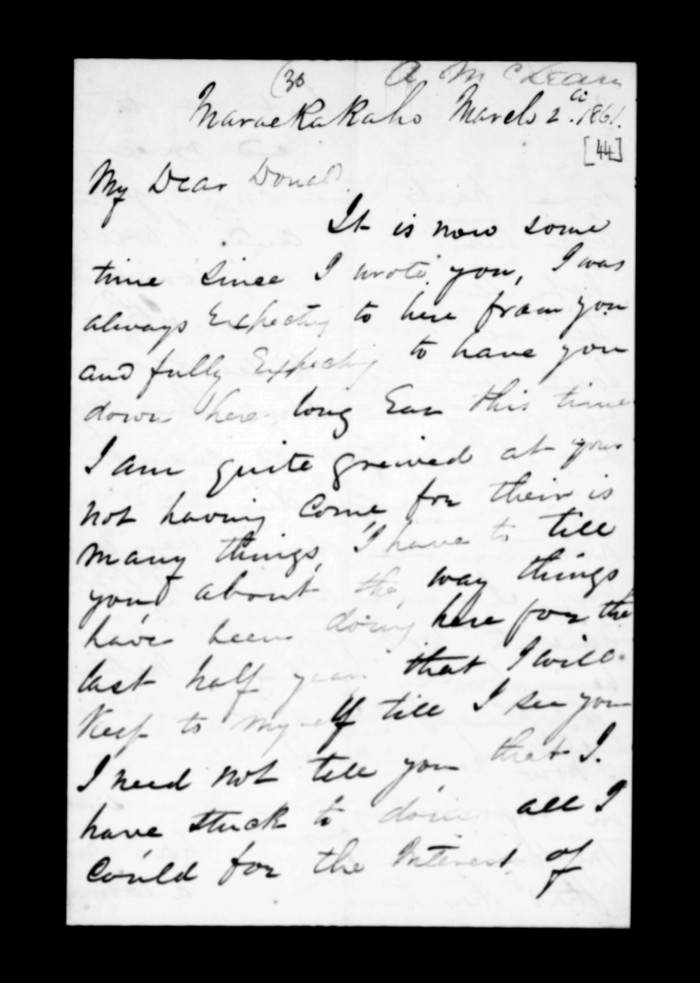 (30 A McLean
Maraekakaho March 2d. 1861.
[44]
My Dear Donald
It is now some
time since I wrote you, I was
always Expecting to here from you
and fully Expecting to have you
down here long Ear this time
I am quite greived at your
not having come for their is
many things, I have to till
you about the way things
have been doing here for the
last half year that I will
Keep to myself till I see you
I need not tell you that I.
have stuck to doing all I
could for the Interest of